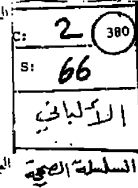 C: 2 380
S: 66
الألباني
السلسلة الصحيحة